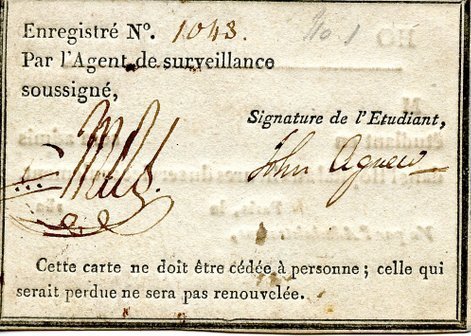 Enregistré Nº. 1043. No. 1
Par l'Agent de surveillance
soussigné,
Signature de l'Etudiant,
John Agnew
Cette carte ne doit être cédée à personne ; celle qui
serait perdue ne sera pas renouvelée.